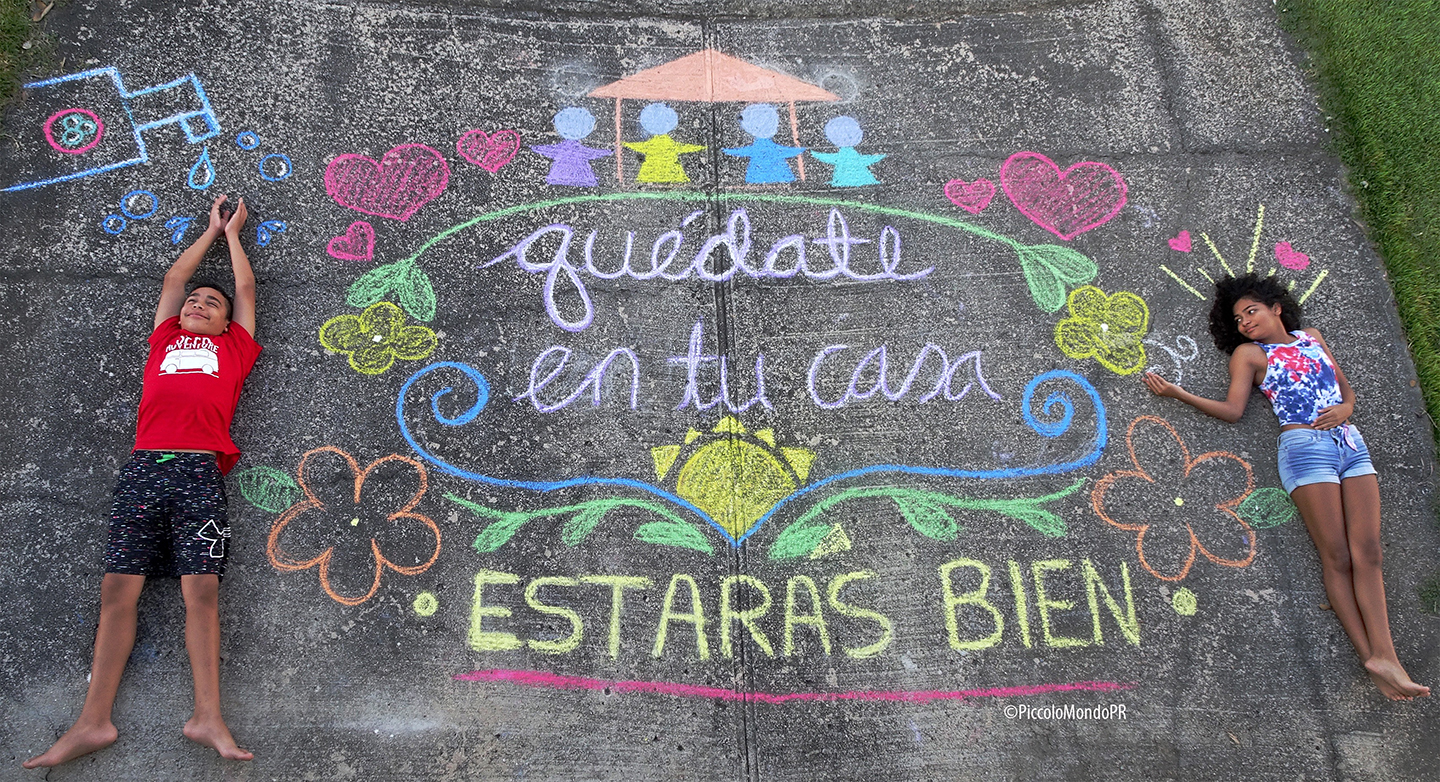 quédate
en tu casa
ESTARAS BIEN
ADVENTURE
©PiccoloMondoPR